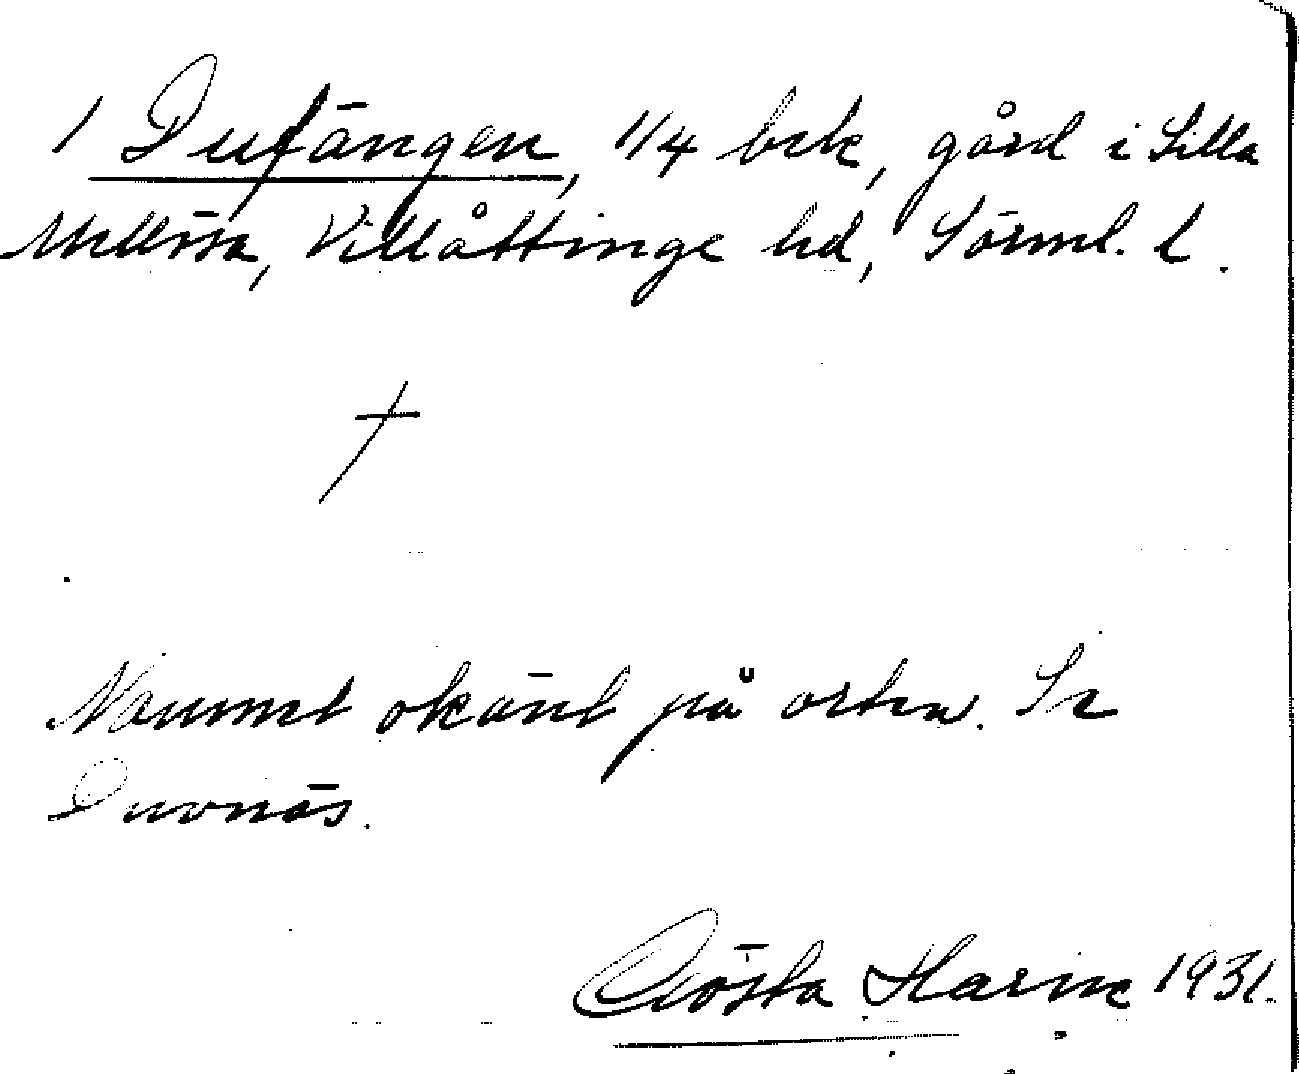 1 Dufängen, 1/4 bek, gård i Lilla
Mellösa, Villåttinge hd, Sörml. l.
†
Namnet okänt på orten. Se
Duvnäs.
Gösta Harine 1931.